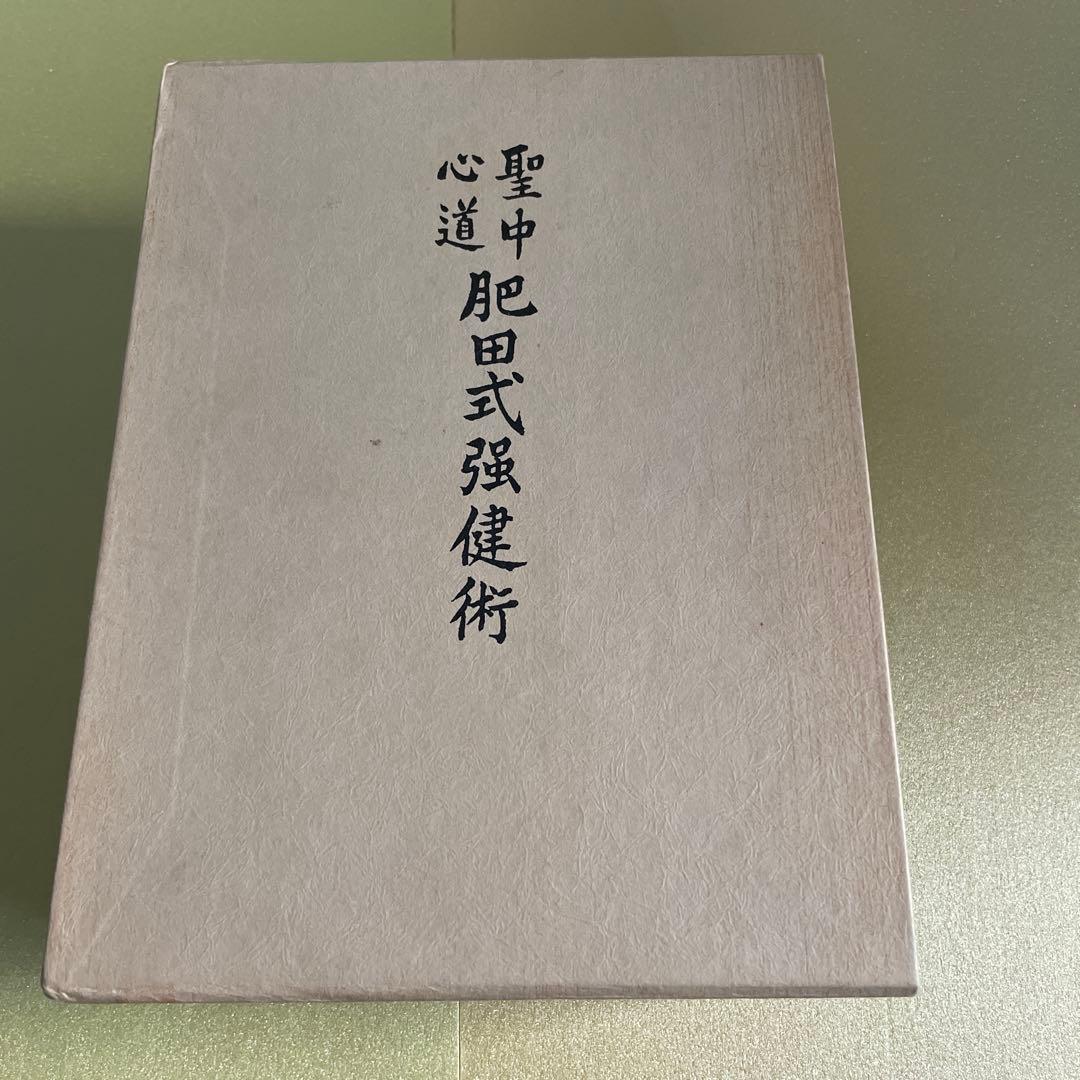 聖中
心道
肥田式强健術